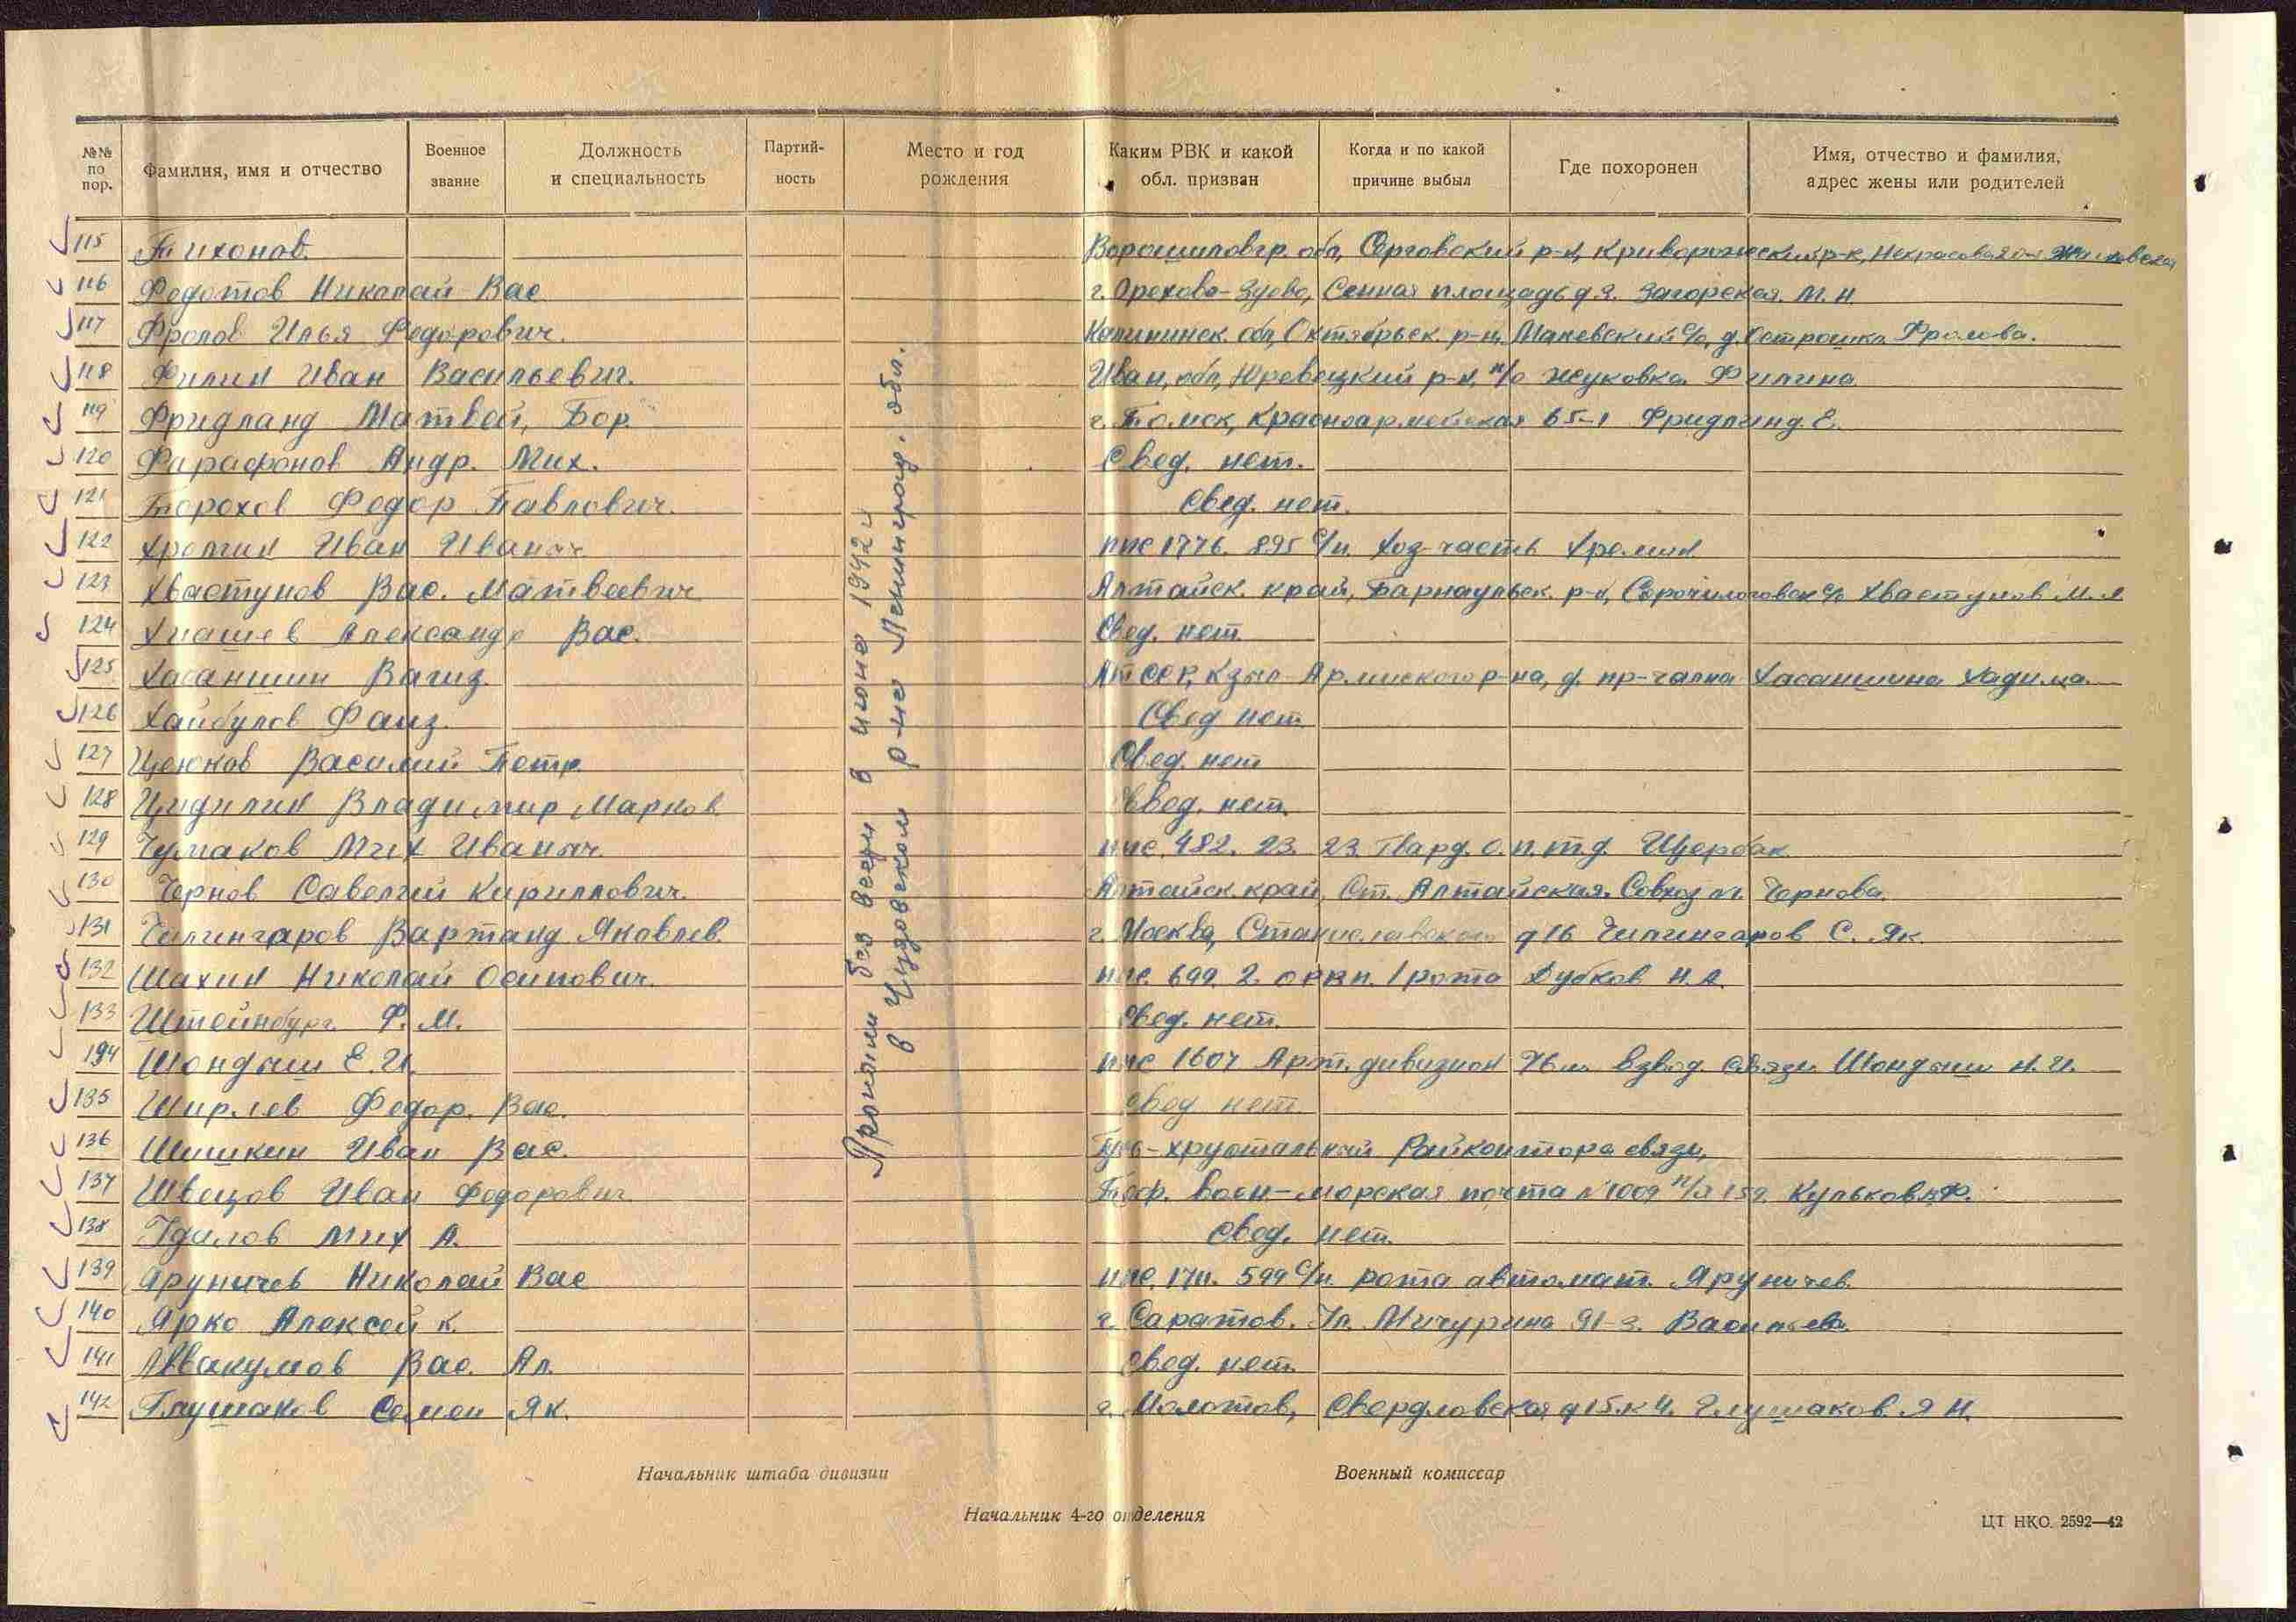 №№ по пор.
Фамилия, имя и отчество
Военное звание
Должность и специальность
Партий-ность
Место и год рождения
Каким РВК и какой обл. призван
Когда и по какой причине выбыл
Где похоронен
Имя, отчество и фамилия, адрес жены или родителей
115 Тихонов. Ворошиловгр. обл, р-н, Криворожский р-к,
116 Федотов Николай Вас г. Орехово-Зуево, Сенная площадь д 9. Загорская. М. Н.
117 Фролов Илья Федорович. Калининск. обл, Октябрьск. р-н, Макевский с/с, д. Острошки Фролова.
118 Филин Иван Васильевич. Иван, обл, Юревецкий р-н, п/о Жуковка Филина
119 Фридланд Матвей, Бор. г. Томск, Красноармейская 65-1 Фридлянд. Е.
120 Фарафонов Андр. Мих. Свед. нет.
121 Торохов Федор Павлович. Свед. нет.
122 Хролин Иван Иваныч ппс 1776. 895 с/п. Хоз-часть
123 Хвастунов Вас. Матвеевич Алтайск. край, Барнаульск. р-н, Хвастунов М. Я.
124 Александр Вас. Свед. нет
125 Хасаншин Вагиз. р-на, д. Хасаншина Хадима.
126 Хайбулов Фаиз. Свед нет
127 Василий Петр. Свед. нет
128 Цидилин Владимир Марков. Свед. нет.
129 Чумаков Мих Иваныч. ппс. 482. 23. 23 Гвард. о. п. т. д. Щербак.
130 Чернов Савелий Кириллович. Алтайск. край, Ст. Алтайская. Совхоз Чернова.
131 Чилингаров Вартанд Яковлев. г. Москва, Станиславского д 16 Чилингаров С. Як.
132 Шахин Николай Осипович. ппс. 699. 2. 1 рота Дубков Н. А.
133 Штейнбург. Ф. М. Свед. нет.
134 Шондыш Е. И. ппс 1607 Арт. дивизион 76 м. взвод связи Шондыш Н. И.
135 Ширлев Федор. Вас. Свед нет.
136 Шишкин Иван Вас. Гусь-хрустальный Райконтора связи,
137 Швецов Иван Федорович. воен-морская почта № 1009 п/я 159. Кульков
138 Удалов Мих А. Свед. нет.
139 Яруничев Николай Вас ппс. 1711. 599 с/п. рота автомат. Яруничев.
140 Ярко Алексей К. г. Саратов. Ул. Мичурина 91-3. Васильева.
141 Аввакумов Вас. Ал. Свед. нет.
142 Глушаков Семен Як. г. Молотов, Свердловская д 15. к 4. Глушаков. Я Н.
Пропали без вести в июне 1942 г
в Чудовском р-не Ленинград. обл.
Начальник штаба дивизии
Военный комиссар
Начальник 4-го отделения
ЦТ НКО. 2592—42